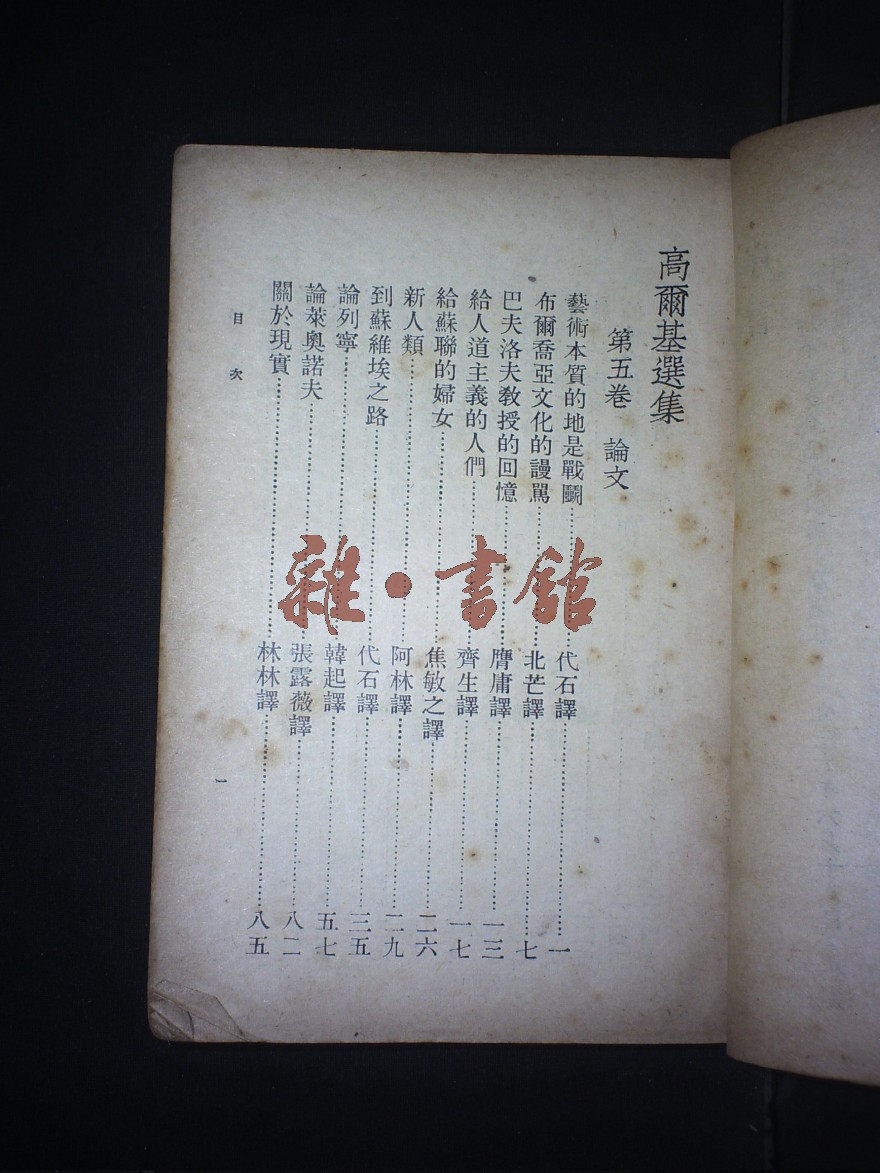 高爾基選集
第五卷　論文
藝術本質的地是戰鬭………代石譯………一
布爾喬亞文化的謾罵………北芒譯………七
巴夫洛夫敎授的回憶………膺庸譯………一三
給人道主義的人們………齊生譯………一七
給蘇聯的婦女………焦敏之譯………二六
新人類………阿林譯………二九
到蘇維埃之路………代石譯………三五
論列寧………韓起譯………五七
論萊奧諾夫………張露薇譯………八二
關於現實………林林譯………八五
目次
一
雜·書舘